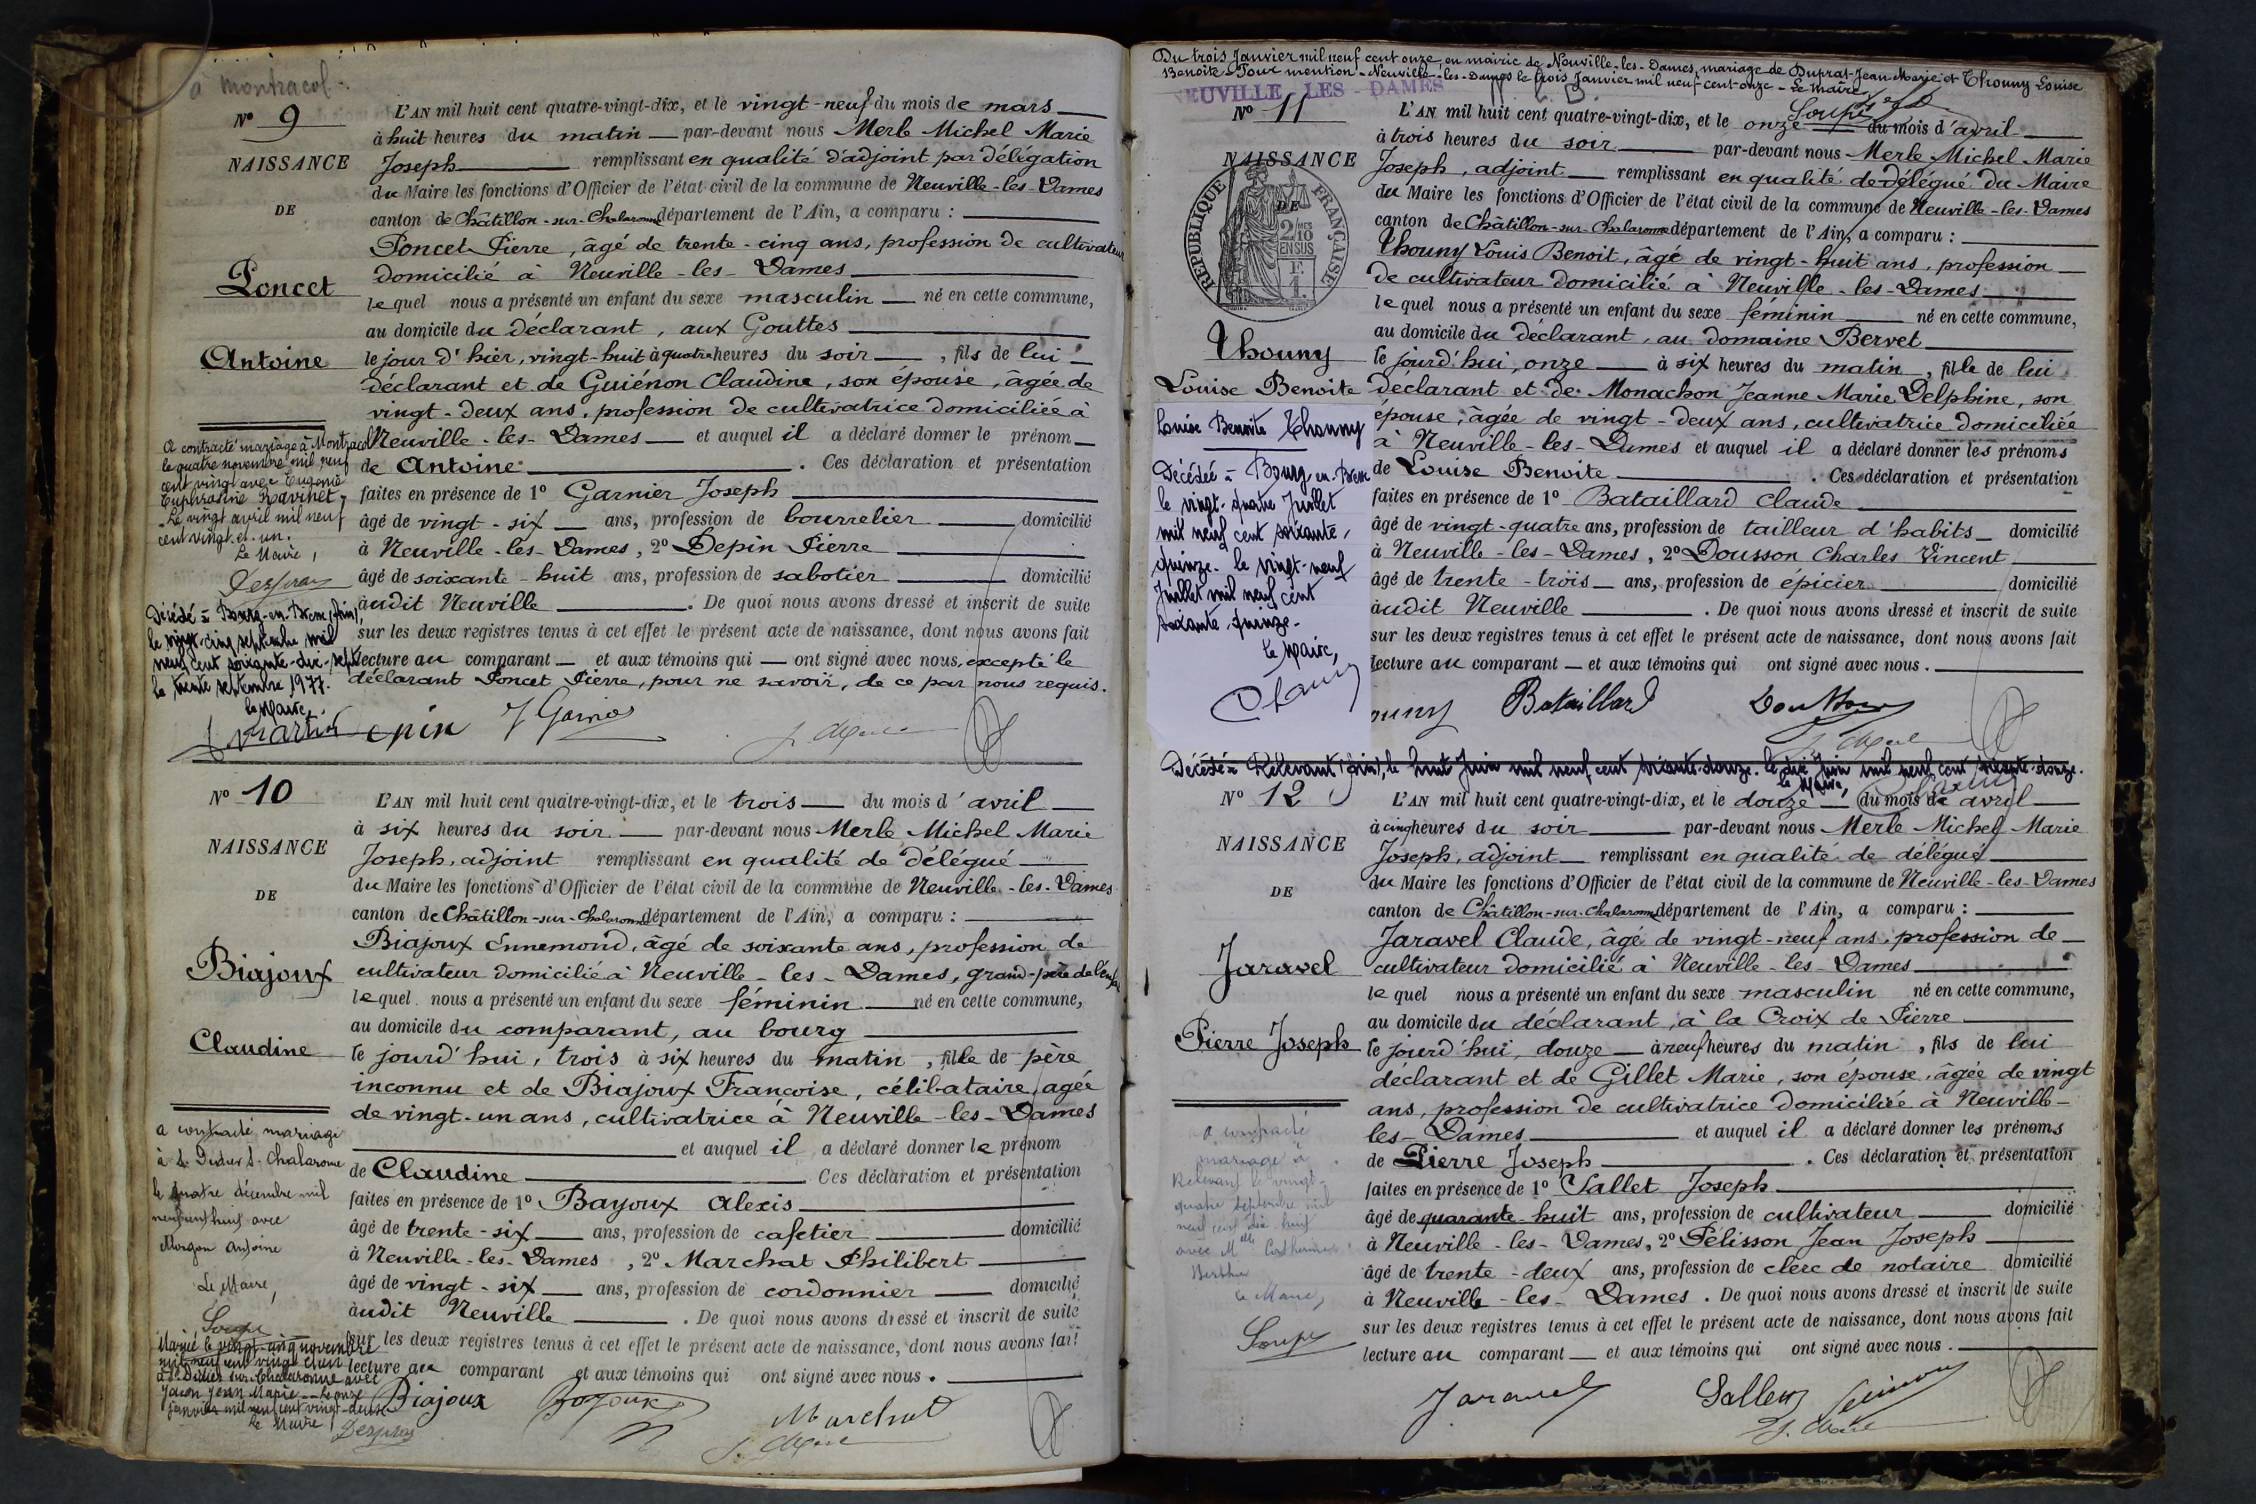 à Montracol
Nº 9
NAISSANCE
DE
Poncet
Antoine
L'AN mil huit cent quatre-vingt-dix, et le vingt-neuf du mois de mars
à huit heures du matin par-devant nous Merle Michel Marie
Joseph remplissant en qualité d'adjoint par délégation
du Maire les fonctions d'Officier de l'état civil de la commune de Neuville-les-Dames
canton de Châtillon-sur-Chalaronne département de l'Ain, a comparu :
Poncet Pierre, âgé de trente-cinq ans, profession de cultivateur
domicilié à Neuville-les-Dames
lequel nous a présenté un enfant du sexe masculin né en cette commune,
au domicile du déclarant, aux Gouttes
le jour d'hier, vingt-huit à quatre heures du soir, fils de lui
déclarant et de Guiénon Claudine, son épouse, âgée de
vingt-deux ans, profession de cultivatrice domiciliée à
Neuville-les-Dames et auquel il a déclaré donner le prénom
de Antoine. Ces déclaration et présentation
faites en présence de 1º Garnier Joseph
âgé de vingt-six ans, profession de bourrelier domicilié
à Neuville-les-Dames, 2º Depin Pierre
âgé de soixante-huit ans, profession de sabotier domicilié
audit Neuville. De quoi nous avons dressé et inscrit de suite
sur les deux registres tenus à cet effet le présent acte de naissance, dont nous avons fait
lecture au comparant et aux témoins qui ont signé avec nous, excepté le
déclarant Poncet Pierre, pour ne savoir, de ce par nous requis.
A contracté mariage à Montracol
le quatre novembre mil neuf
cent vingt avec Eugénie
Euphrasine Ravinet
Le vingt avril mil neuf
cent vingt et un.
Le Maire,
Décédé à Bourg-en-Bresse (Ain),
le vingt-cinq septembre mil
neuf cent soixante-dix-sept
le trente septembre 1977.
le Maire,
Depin J Garnier
Nº 10
NAISSANCE
DE
Biajoux
Claudine
L'AN mil huit cent quatre-vingt-dix, et le trois du mois d'avril
à six heures du soir par-devant nous Merle Michel Marie
Joseph, adjoint remplissant en qualité de délégué
du Maire les fonctions d'Officier de l'état civil de la commune de Neuville-les-Dames
canton de Châtillon-sur-Chalaronne département de l'Ain, a comparu :
Biajoux Ennemond, âgé de soixante ans, profession de
cultivateur domicilié à Neuville-les-Dames, grand-père de l'enfant
lequel nous a présenté un enfant du sexe féminin né en cette commune,
au domicile du comparant, au bourg
le jourd'hui, trois à six heures du matin, fille de père
inconnu et de Biajoux Françoise, célibataire, agée
de vingt-un ans, cultivatrice à Neuville-les-Dames
et auquel il a déclaré donner le prénom
de Claudine Ces déclaration et présentation
faites en présence de 1º Bayoux Alexis
âgé de trente-six ans, profession de cafetier domicilié
à Neuville-les-Dames, 2º Marchat Philibert
âgé de vingt-six ans, profession de cordonnier domicilié
audit Neuville. De quoi nous avons dressé et inscrit de suite
sur les deux registres tenus à cet effet le présent acte de naissance, dont nous avons fait
lecture au comparant et aux témoins qui ont signé avec nous.
a contracté mariage
à St Didier s. Chalaronne
le quatre décembre mil
neuf cent huit avec
Morgon Antoine
Le Maire,
Soupe
Mariée le vingt-cinq novembre
mil neuf cent vingt et un
à St Didier sur Chalaronne avec
Jacon Jean Marie Le onze
janvier mil neuf cent vingt-deux
Le Maire
Biajoux Bajoux Marchat
Du trois Janvier mil neuf cent onze, en mairie de Neuville-les-Dames, mariage de Duprat Jean-Marie et Thouny Louise
Benoîte. Pour mention. Neuville-les-Dames le trois Janvier mil neuf cent onze - Le Maire
Soupe
NEUVILLE-LES-DAMES
Nº 11
NAISSANCE
DE
RÉPUBLIQUE FRANÇAISE
2 MES
10
EN SUS
Thouny
Louise Benoite
L'AN mil huit cent quatre-vingt-dix, et le onze du mois d'avril
à trois heures du soir par-devant nous Merle Michel Marie
Joseph, adjoint remplissant en qualité de délégué du Maire
du Maire les fonctions d'Officier de l'état civil de la commune de Neuville-les-Dames
canton de Châtillon-sur-Chalaronne département de l'Ain, a comparu :
Thouny Louis Benoit, âgé de vingt-huit ans, profession
de cultivateur domicilié à Neuville-les-Dames
lequel nous a présenté un enfant du sexe féminin né en cette commune,
au domicile du déclarant, au domaine Bervet
le jourd'hui, onze à six heures du matin, fille de lui
déclarant et de Monachon Jeanne Marie Delphine, son
épouse, âgée de vingt-deux ans, cultivatrice domiciliée
à Neuville-les-Dames et auquel il a déclaré donner les prénoms
de Louise Benoite. Ces déclaration et présentation
faites en présence de 1º Bataillard Claude
âgé de vingt-quatre ans, profession de tailleur d'habits domicilié
à Neuville-les-Dames, 2º Dousson Charles Vincent
âgé de trente-trois ans, profession de épicier domicilié
audit Neuville. De quoi nous avons dressé et inscrit de suite
sur les deux registres tenus à cet effet le présent acte de naissance, dont nous avons fait
lecture au comparant et aux témoins qui ont signé avec nous.
Louise Benoite Thouny
Décédée à Bourg-en-Bresse
le vingt-quatre Juillet
mil neuf cent soixante-
quinze. le vingt-neuf
Juillet mil neuf cent
soixante-quinze.
le Maire,
Bataillard Dousson
Décédé à Relevant (Ain), le huit Juin mil neuf cent soixante-douze. le dix Juin mil neuf cent soixante-douze.
le Maire,
Nº 12
NAISSANCE
DE
Jaravel
Pierre Joseph
L'AN mil huit cent quatre-vingt-dix, et le douze du mois de avril
à cinq heures du soir par-devant nous Merle Michel Marie
Joseph, adjoint remplissant en qualité de délégué
du Maire les fonctions d'Officier de l'état civil de la commune de Neuville-les-Dames
canton de Châtillon-sur-Chalaronne département de l'Ain, a comparu :
Jaravel Claude, âgé de vingt-neuf ans, profession de
cultivateur domicilié à Neuville-les-Dames
lequel nous a présenté un enfant du sexe masculin né en cette commune,
au domicile du déclarant, à la Croix de Pierre
le jourd'hui, douze à neuf heures du matin, fils de lui
déclarant et de Gillet Marie, son épouse, âgée de vingt
ans, profession de cultivatrice domiciliée à Neuville-
les-Dames et auquel il a déclaré donner les prénoms
de Pierre Joseph. Ces déclaration et présentation
faites en présence de 1º Sallet Joseph
âgé de quarante-huit ans, profession de cultivateur domicilié
à Neuville-les-Dames, 2º Pélisson Jean Joseph
âgé de trente-deux ans, profession de clerc de notaire domicilié
à Neuville-les-Dames. De quoi nous avons dressé et inscrit de suite
sur les deux registres tenus à cet effet le présent acte de naissance, dont nous avons fait
lecture au comparant et aux témoins qui ont signé avec nous.
a contracté
mariage à
Relevant le vingt-
quatre septembre mil
neuf cent dix huit
avec Melle
Berthe
le Maire,
Soupe
Jaravel